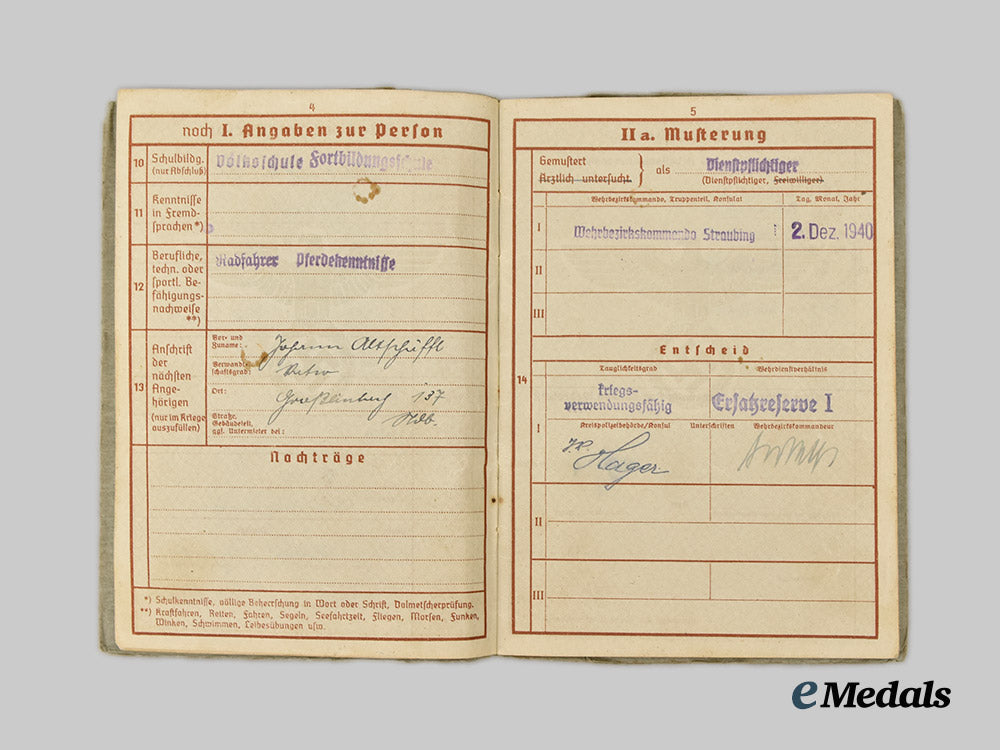 4
noch I. Angaben zur Person
10 Schulbildg. (nur Abschluß)
Volksschule Fortbildungsschule
11 Kenntnisse in Fremd- sprachen *)
12 Berufliche, techn. oder sportl. Be- fähigungs- nachweise **)
Radfahrer Pferdekenntnisse
13 Anschrift der nächsten Ange- hörigen (nur im Kriege auszufüllen)
Vor- und Zuname:
Johann Altschäffl
Verwandt- schaftsgrad:
Vater
Ort:
137
Straße, Gebäudeteil, ggf. Untermieter bei:
Ndb.
Nachträge
*) Schulkenntnisse, völlige Beherrschung in Wort oder Schrift, Dolmetscherprüfung.
**) Kraftfahren, Reiten, Fahren, Segeln, Seefahrtzeit, Fliegen, Morsen, Funken,
Winken, Schwimmen, Leibesübungen usw.
5
II a. Musterung
Gemustert
Ärztlich untersucht
} als Dienstpflichtiger
(Dienstpflichtiger, Freiwilliger)
Wehrbezirkskommando, Truppenteil, Konsulat
Tag, Monat, Jahr
I Wehrbezirkskommando Straubing 2. Dez. 1940
II
III
14
Entscheid
Tauglichkeitsgrad
Wehrdienstverhältnis
I
kriegs-
verwendungsfähig
Ersatzreserve I
Kreispolizeibehörde/Konsul Unterschriften Wehrbezirkskommandeur
Hager
II
III
eMedals